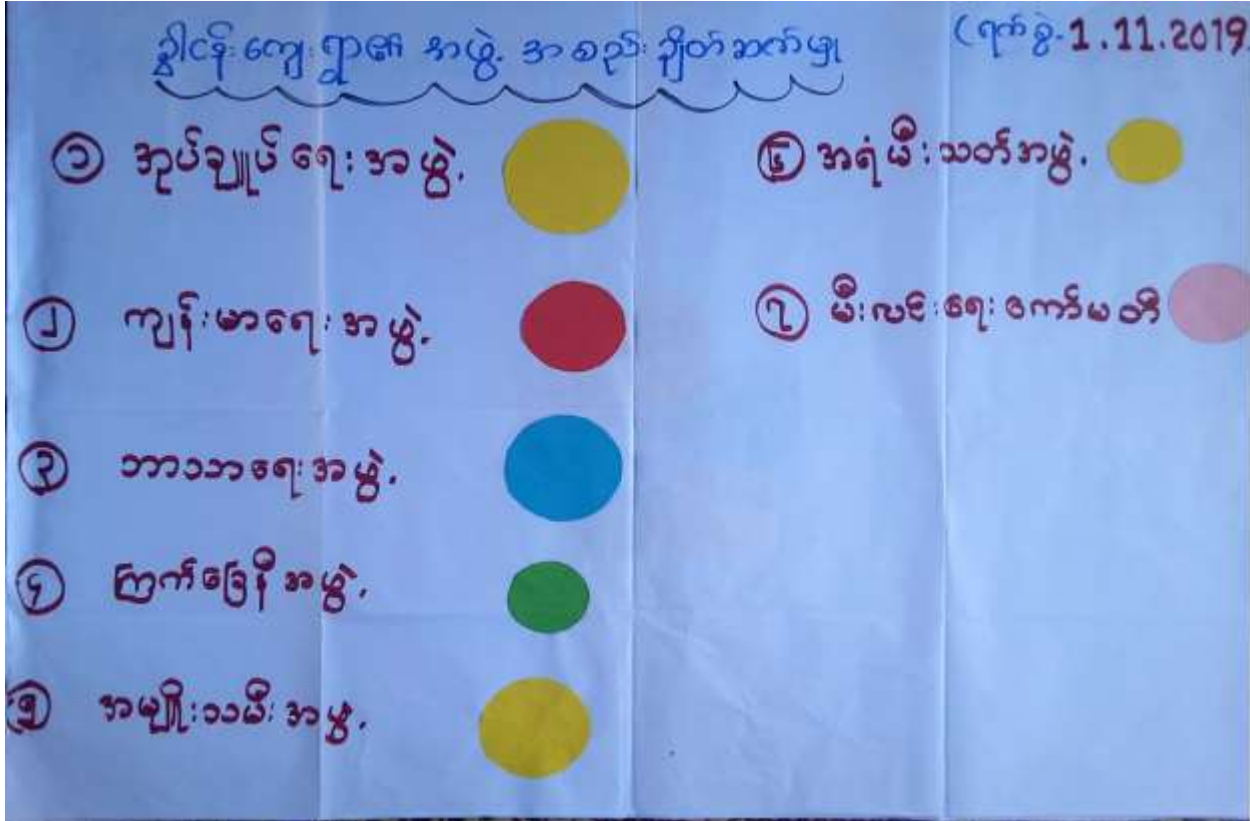 ခွါငန်းကျေးရွာ၏ အဖွဲ့အစည်းချိတ်ဆက်မှု
(ရက်စွဲ-1.11.2019
၁ အုပ်ချုပ်ရေးအဖွဲ့
၂ ကျန်းမာရေးအဖွဲ့
၃ ဘာသာရေးအဖွဲ့
၄ ကြက်ခြေနီအဖွဲ့
၅ အမျိုးသမီးအဖွဲ့
၆ အရံမီးသတ်အဖွဲ့
၇ မီးလင်းရေးကော်မတီ